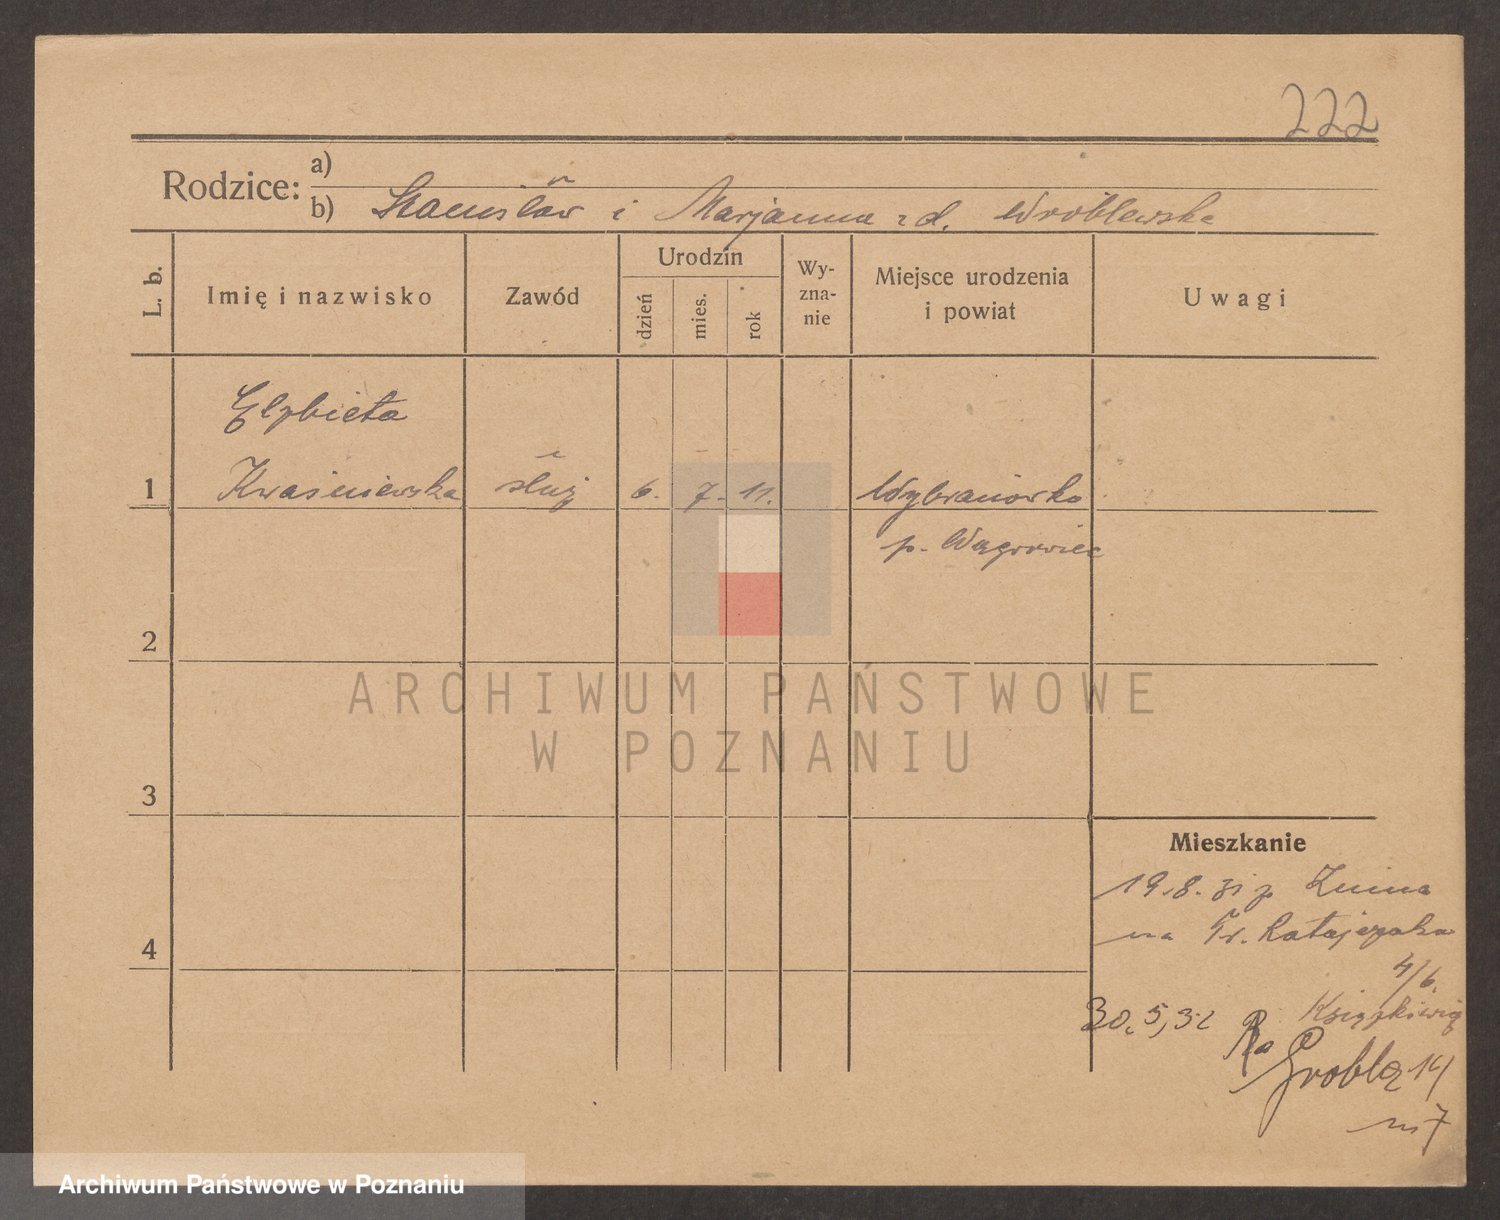 222
Rodzice:
a)
b) Stanisław i Marjanna zd. Wróblewska
L. b.
Imię i nazwisko
Zawód
Urodzin
dzień
mies.
rok
Wy-
zna-
nie
Miejsce urodzenia
i powiat
Uwagi
Elżbieta
1 Kwaśniewska służ 6. 7. 11. Wybranówko
p. Wągrowiec
2
ARCHIWUM PAŃSTWOWE
W POZNANIU
3
Mieszkanie
19.8.31 z Żnina
na Fr. Ratajczaka
4
4/6.
30,5,32
Grobla 14/
m 7
Archiwum Państwowe w Poznaniu